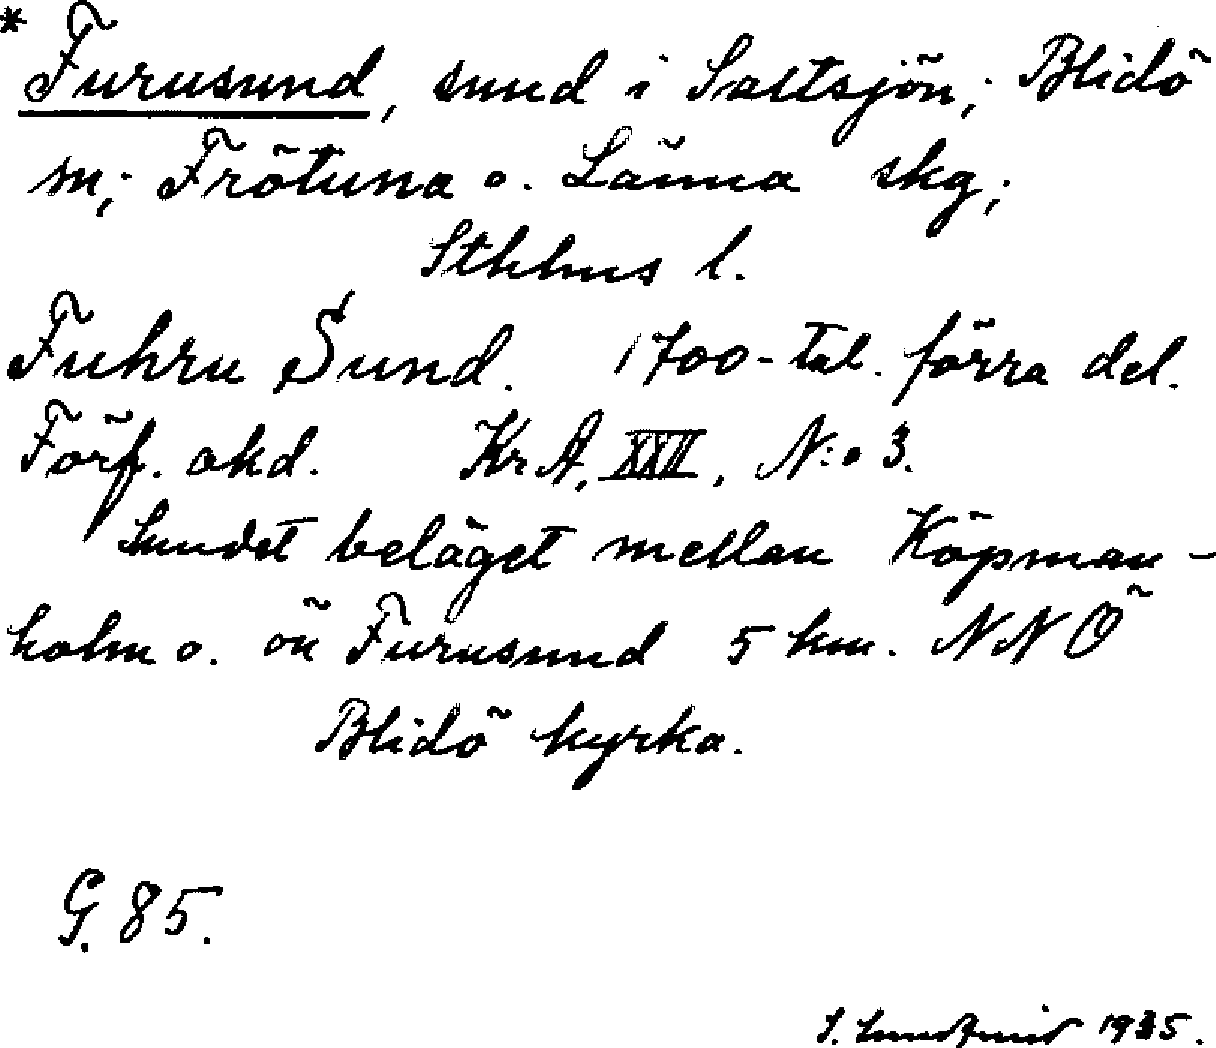 * Furusund, sund i Saltsjön; Blidö
sn; Frötuna o. Länna skg;
Sthlms l.
Fuhru Sund. 1700-tal. förra del.
Förf. okd. KrA, XXII, N:o 3.
Sundet beläget mellan Köpman-
holm o. ön Furusund 5 km. NNÖ
Blidö kyrka.
G. 85.
S. 1935.